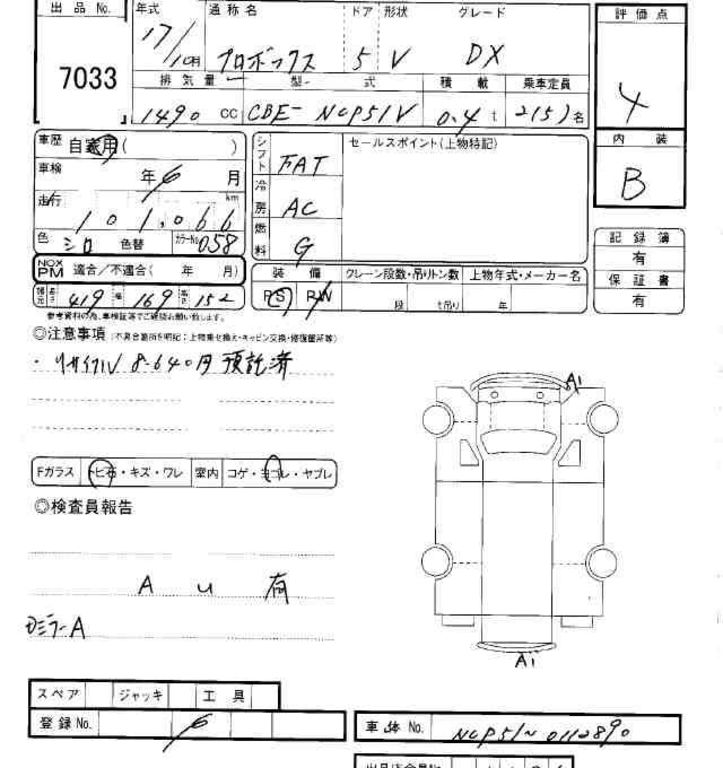 出品 No. 年式 通称名 ドア 形状 グレード 評価点
7033 17/10月 プロボックス 5 V DX 4
排気量 型式 積載 乗車定員
1490 cc CBE- NCP51V 0.4 t 2(5)名
内装
B
車歴 自家用( )
シフト FAT
セールスポイント(上物特記)
車検 年 6 月
冷房 AC
走行 101,066 km
燃料 G
色 シロ 色替 カラーNo. 058
記録簿
有
保証書
有
NOX PM 適合/不適合( 年 月)
装備 クレーン段数・吊りトン数 上物年式・メーカー名
PS R/W 段 t吊り 年
諸元 長さ 419 幅 169 高さ 152
参考資料の為、車検証等でご確認お願い致します。
◎注意事項 (不具合箇所を明記:上物乗せ換え・キャビン交換・修復箇所等)
・リサイクル 8.640円 預託済
A1
Fガラス トビ石・キズ・ワレ 室内 コゲ・ヨゴレ・ヤブレ
◎検査員報告
A u 有
ミラーA
A1
スペア ジャッキ 工具
登録 No. 6
車体 No. NCP51~0112890